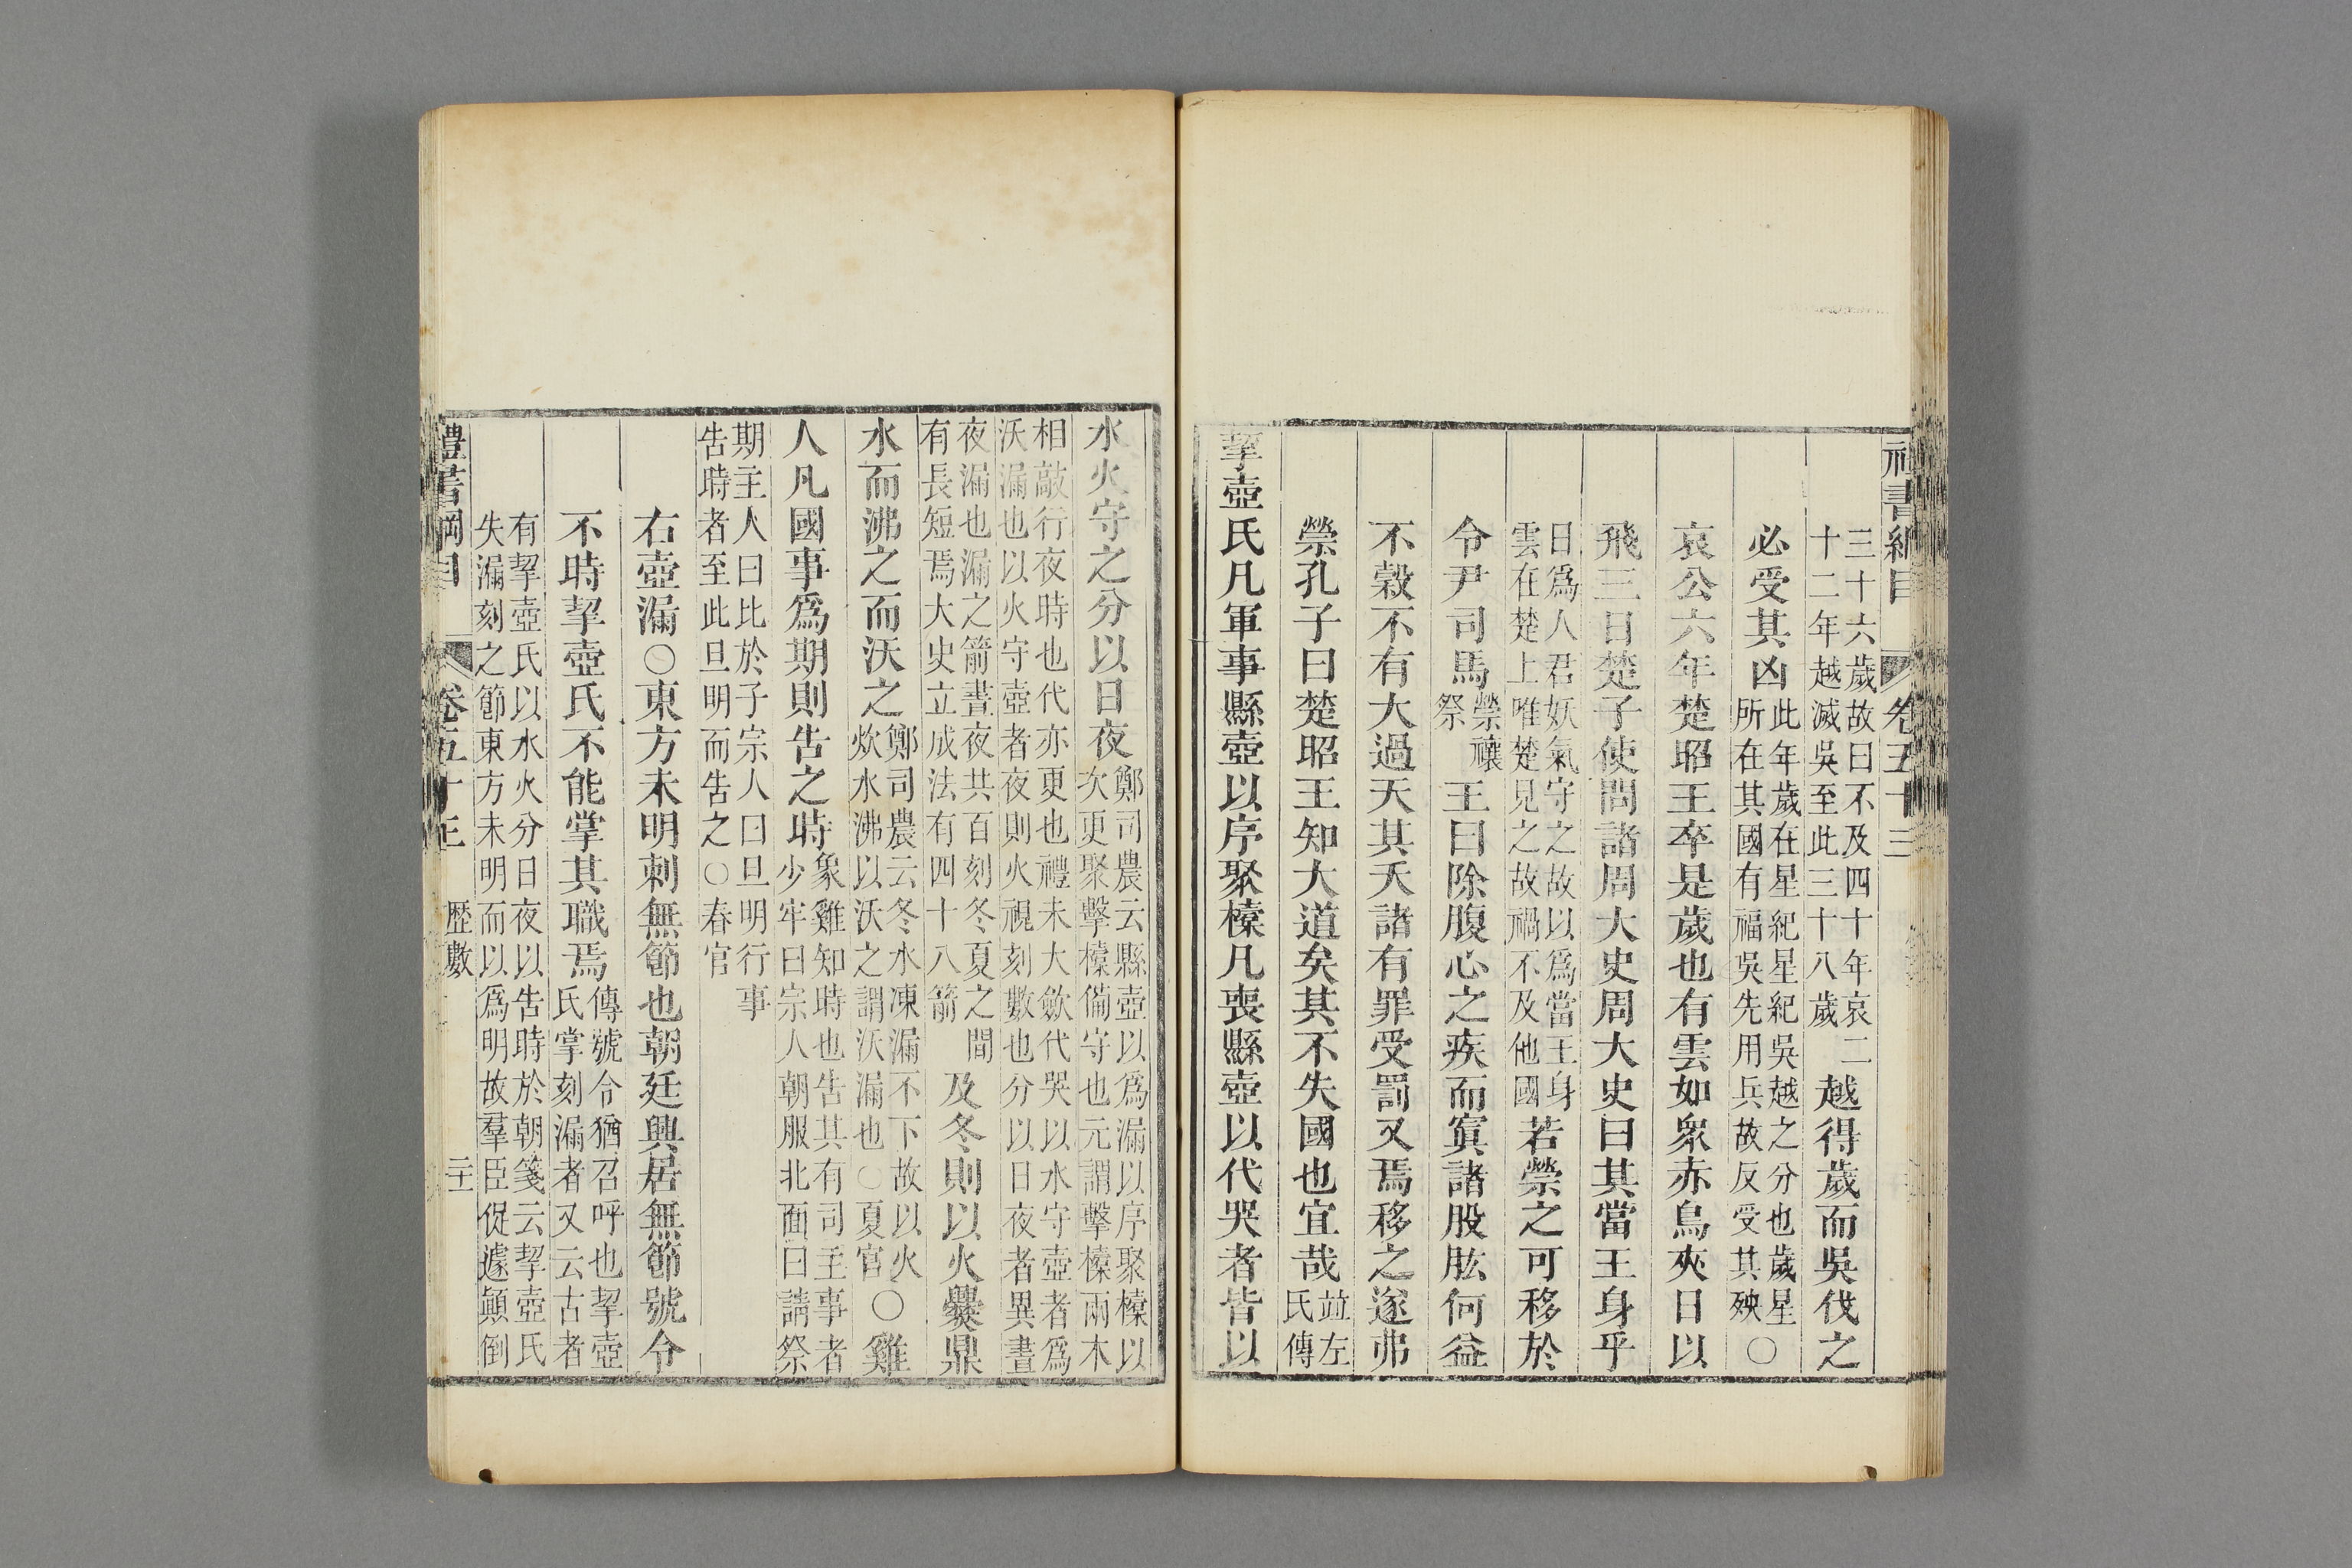 禮書綱目 卷五十三
三十六歲故曰不及四十年哀二
十二年越滅吳至此三十八歲
越得歲而吳伐之
必受其凶
此年歲在星紀星紀吳越之分也歲星
所在其國有福吳先用兵故反受其殃
○
哀公六年楚昭王卒是歲也有雲如衆赤烏夾日以
飛三日楚子使問諸周大史周大史曰其當王身乎
日爲人君妖氣守之故以爲當王身
雲在楚上唯楚見之故禍不及他國
若禜之可移於
令尹司馬
禜禳
祭
王曰除腹心之疾而寘諸股肱何益
不穀不有大過天其夭諸有罪受罰又焉移之遂弗
禜孔子曰楚昭王知大道矣其不失國也宜哉
竝左
氏傳
挈壺氏凡軍事縣壺以序聚㯿凡喪縣壺以代哭者皆以
水火守之分以日夜
鄭司農云縣壺以爲漏以序聚㯿以
次更聚擊㯿僃守也元謂擊㯿兩木
相敲行夜時也代亦更也禮未大斂代哭以水守壺者爲
沃漏也以火守壺者夜則火視刻數也分以日夜者異晝
夜漏也漏之箭晝夜共百刻冬夏之間
有長短焉大史立成法有四十八箭
及冬則以火爨鼎
水而沸之而沃之
鄭司農云冬水凍漏不下故以火
炊水沸以沃之謂沃漏也○夏官
○雞
人凡國事爲期則告之時
象雞知時也告其有司主事者
少牢曰宗人朝服北面曰請祭
期主人曰比於子宗人曰旦明行事
告時者至此旦明而告之○春官
右壺漏○東方未明刺無節也朝廷興居無節號令
不時挈壺氏不能掌其職焉
傳號令猶召呼也挈壺
氏掌刻漏者又云古者
有挈壺氏以水火分日夜以告時於朝箋云挈壺氏
失漏刻之節東方未明而以爲明故羣臣促遽顚倒
禮書綱目 卷五十三 歷數 二十一